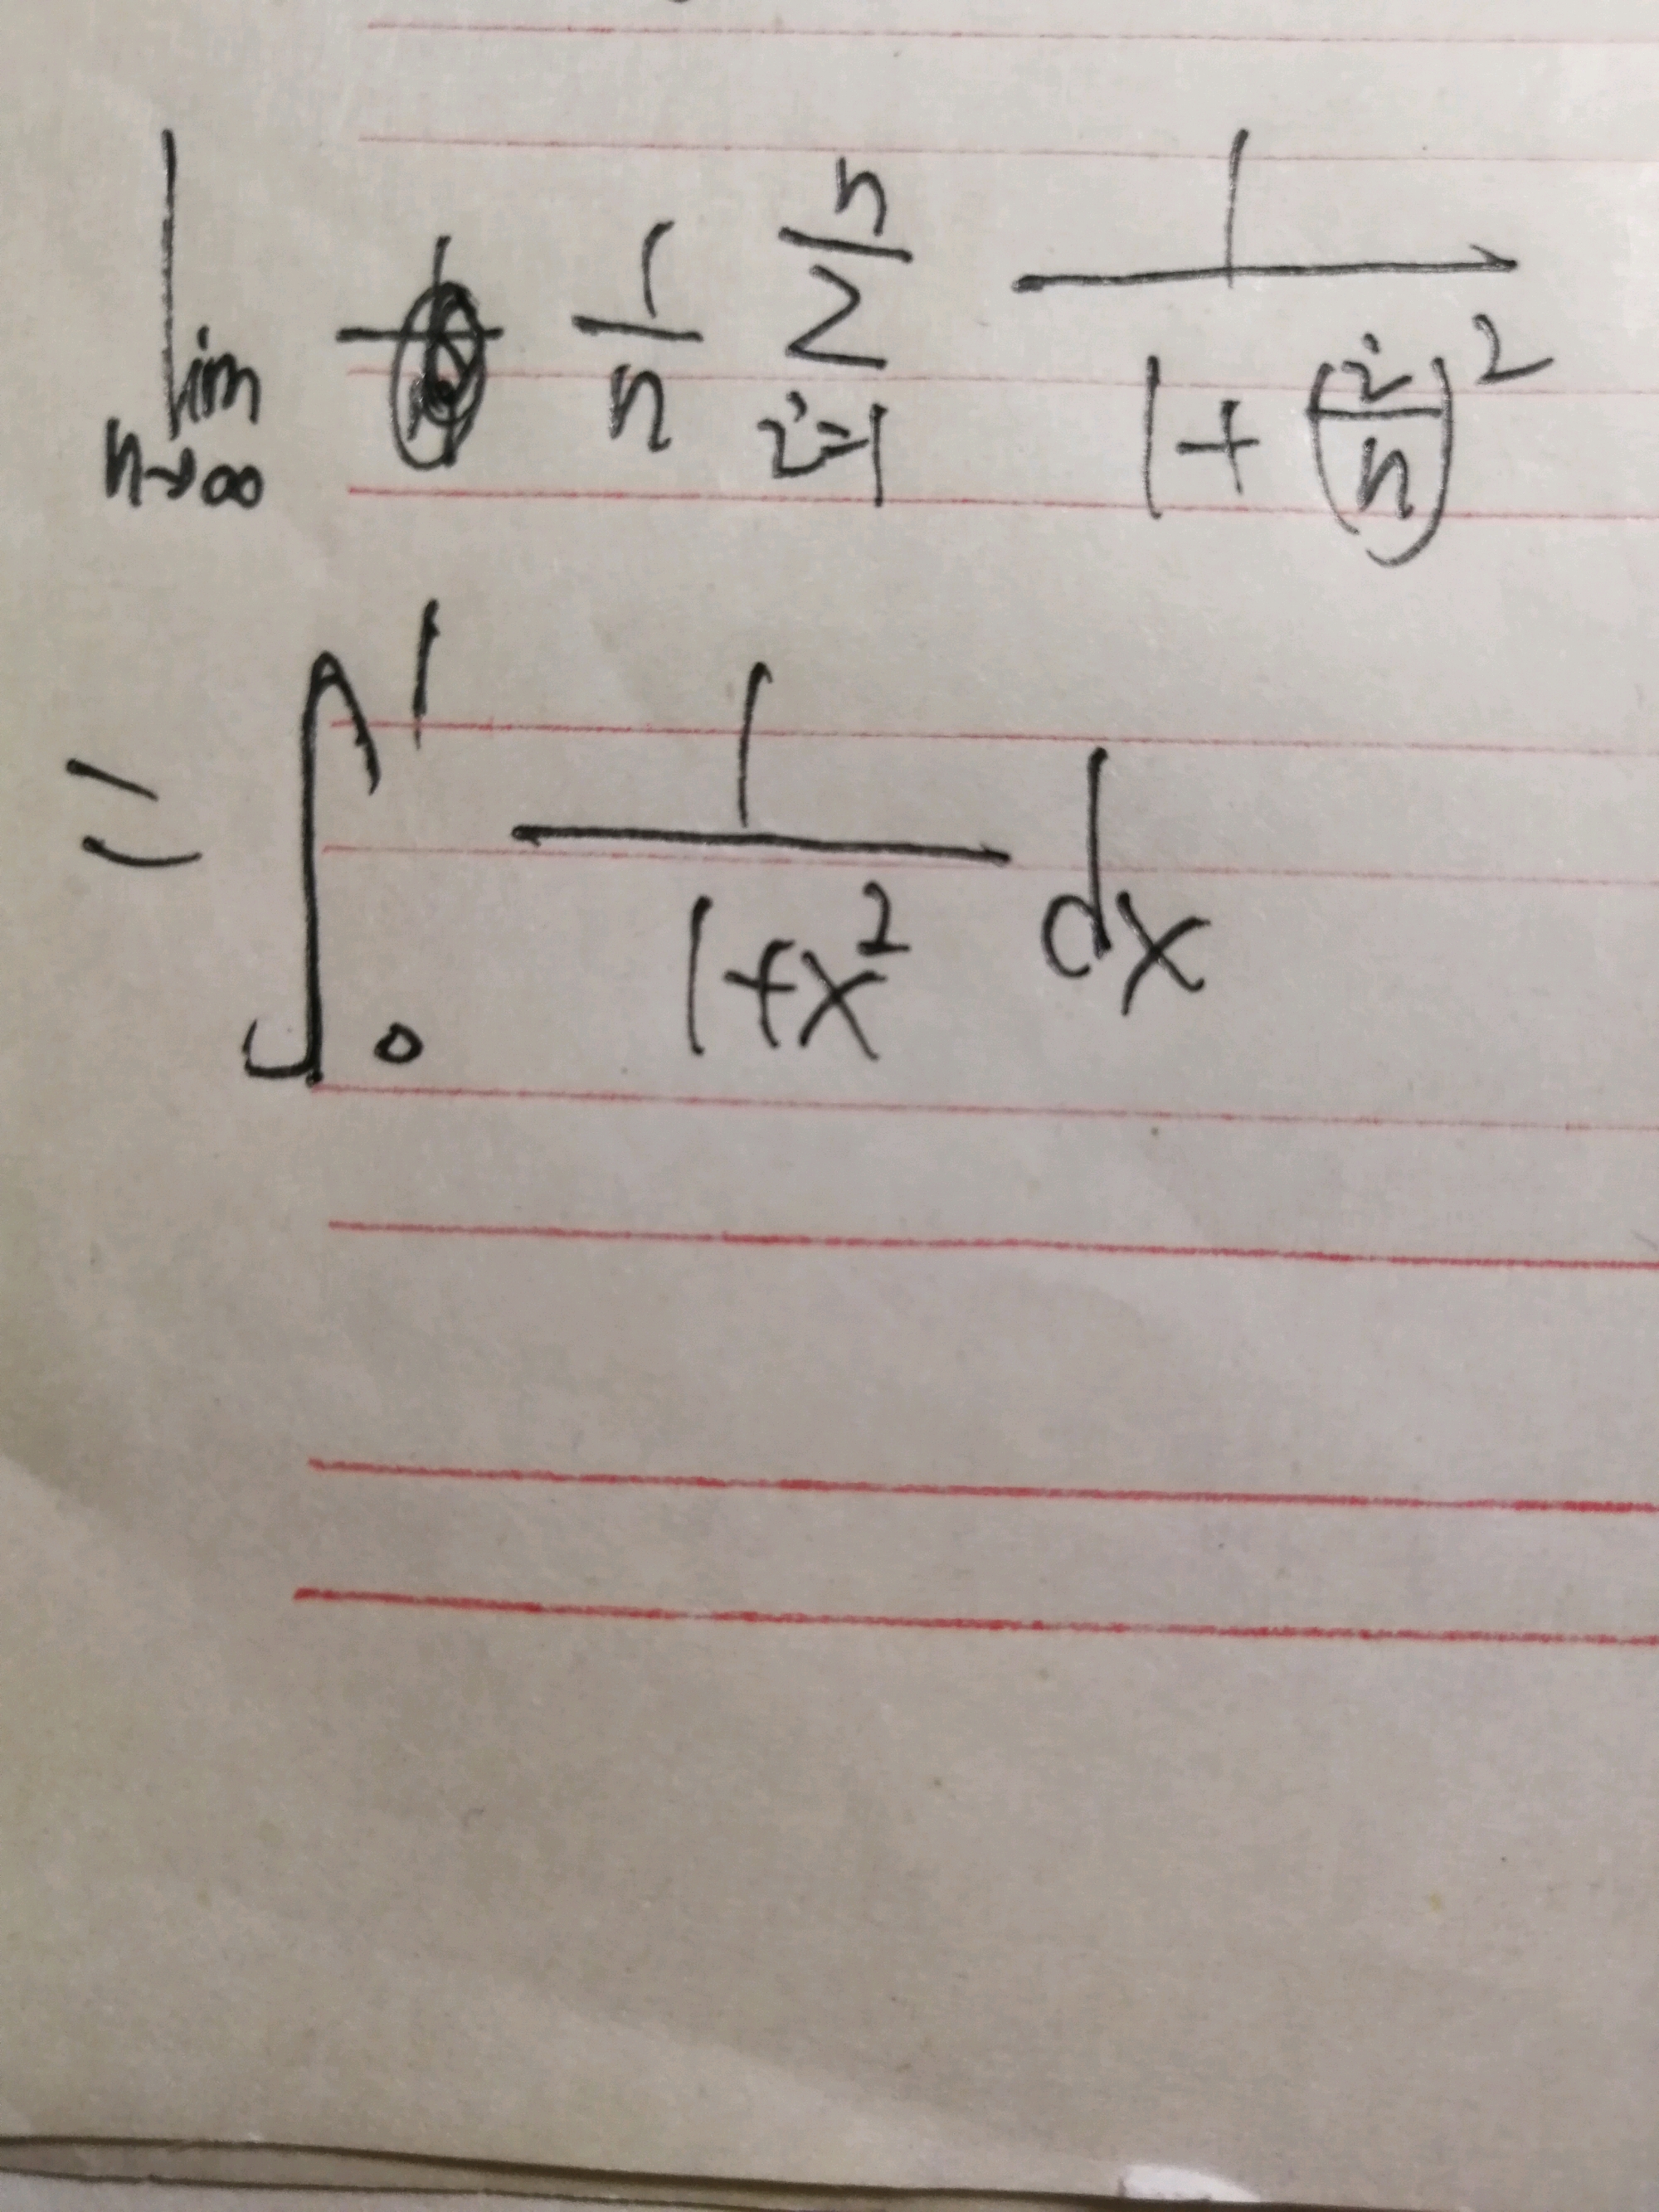 lim n→∞ 1/n ∑ i=1 n 1/(1+(i/n)²)
= ∫₀¹ 1/(1+x²) dx